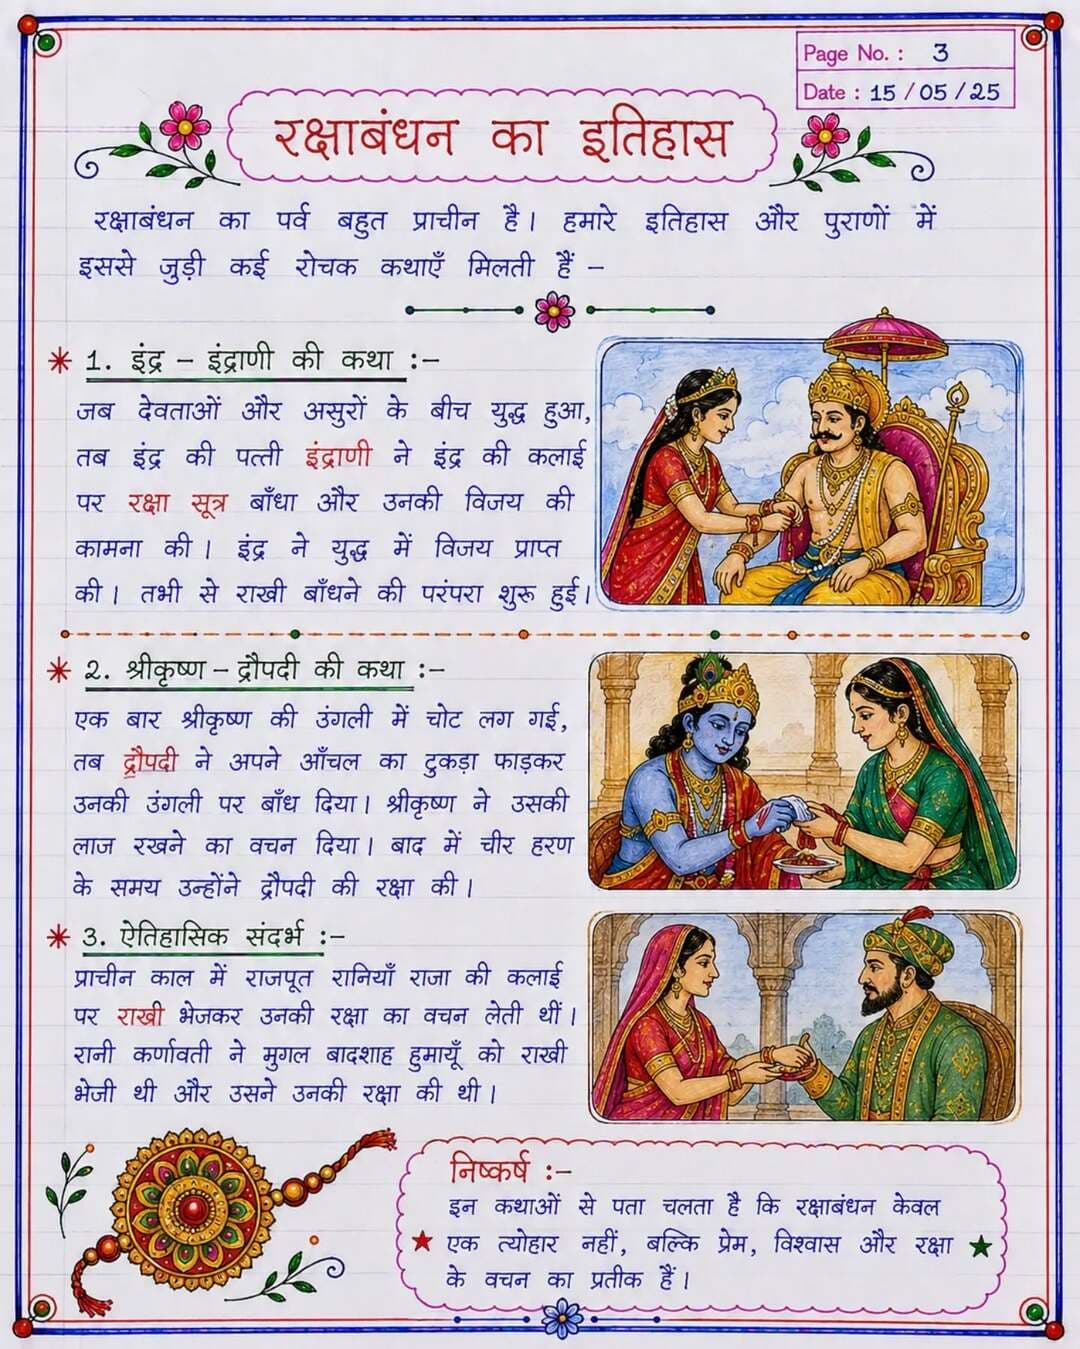 Page No. : 3
Date : 15 / 05 / 25
रक्षाबंधन का इतिहास
रक्षाबंधन का पर्व बहुत प्राचीन है। हमारे इतिहास और पुराणों में
इससे जुड़ी कई रोचक कथाएँ मिलती हैं –
1. इंद्र – इंद्राणी की कथा :–
जब देवताओं और असुरों के बीच युद्ध हुआ,
तब इंद्र की पत्ती इंद्राणी ने इंद्र की कलाई
पर रक्षा सूत्र बाँधा और उनकी विजय की
कामना की। इंद्र ने युद्ध में विजय प्राप्त
की। तभी से राखी बाँधने की परंपरा शुरू हुई।
2. श्रीकृष्ण – द्रौपदी की कथा :–
एक बार श्रीकृष्ण की उंगली में चोट लग गई,
तब द्रौपदी ने अपने आँचल का टुकड़ा फाड़कर
उनकी उंगली पर बाँध दिया। श्रीकृष्ण ने उसकी
लाज रखने का वचन दिया। बाद में चीर हरण
के समय उन्होंने द्रौपदी की रक्षा की।
3. ऐतिहासिक संदर्भ :–
प्राचीन काल में राजपूत रानियाँ राजा की कलाई
पर राखी भेजकर उनकी रक्षा का वचन लेती थीं।
रानी कर्णावती ने मुगल बादशाह हुमायूँ को राखी
भेजी थी और उसने उनकी रक्षा की थी।
निष्कर्ष :–
इन कथाओं से पता चलता है कि रक्षाबंधन केवल
एक त्योहार नहीं, बल्कि प्रेम, विश्वास और रक्षा
के वचन का प्रतीक हैं।